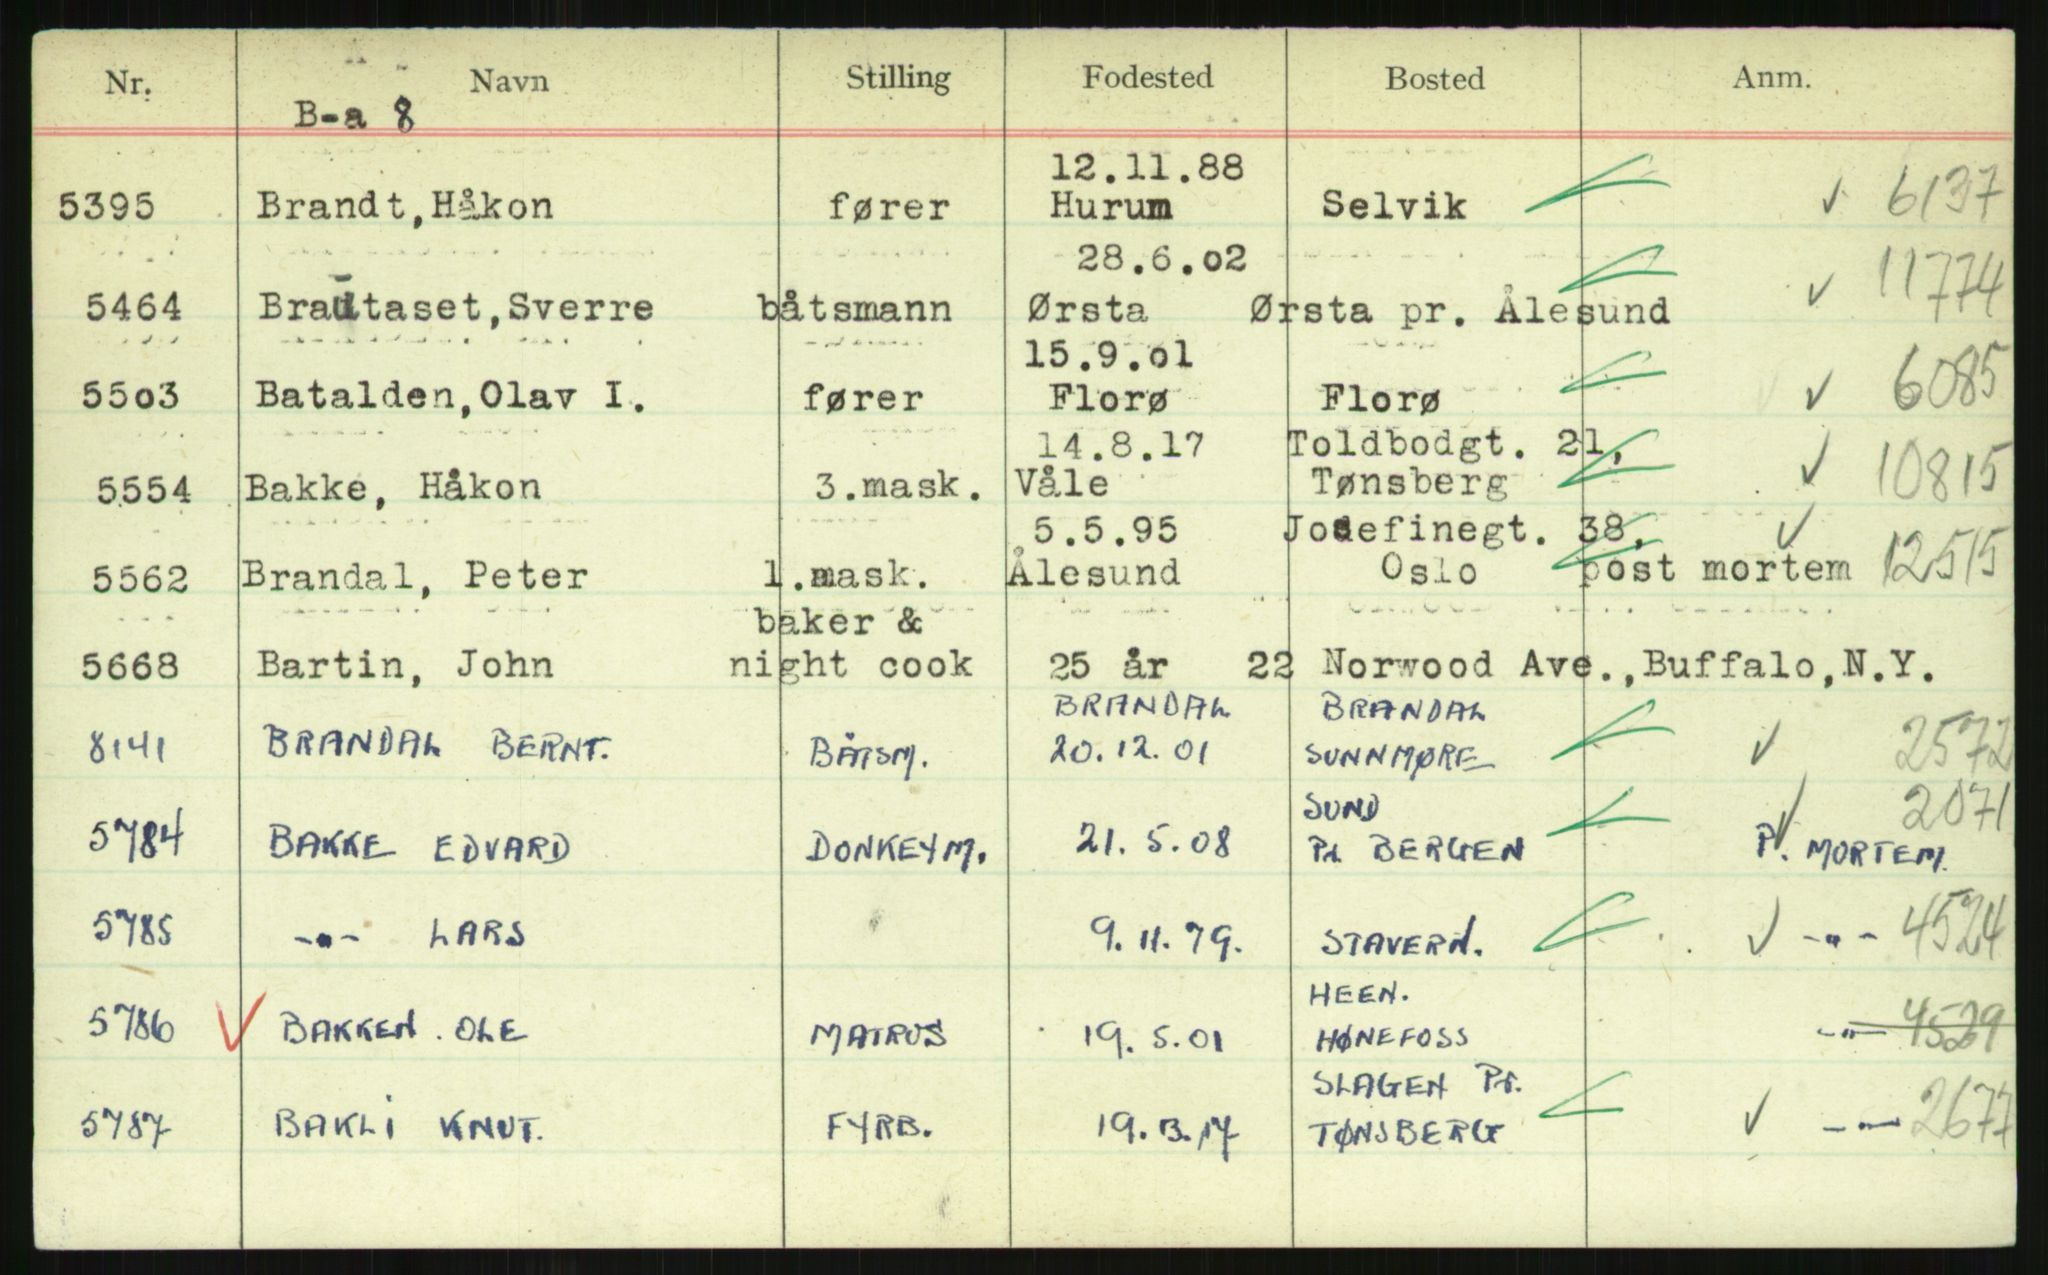 Nr. Navn Stilling Fodested Bosted Anm.
B-a 8
12.11.88
5395 Brandt,Håkon fører Hurum Selvik ✓ 6137
28.6.02
5464 Brautaset,Sverre båtsmann Ørsta Ørsta pr. Ålesund ✓ 11774
15.9.01
5503 Batalden,Olav I. fører Florø Florø ✓ 6085
14.8.17 Toldbodgt. 21,
5554 Bakke, Håkon 3.mask. Våle Tønsberg ✓ 10815
5.5.95 Josefinegt. 38,
5562 Brandal, Peter 1.mask. Ålesund Oslo post mortem ✓ 12515
baker &
5668 Bartin, John night cook 25 år 22 Norwood Ave.,Buffalo,N.Y.
BRANDAL BRANDAL
8141 BRANDAL BERNT. BÅTSM. 20.12.01 SUNNMØRE ✓ 2572
SUND 2071
5784 BAKKE EDVARD DONKEYM. 21.5.08 Pr BERGEN ✓ P. MORTEM.
5785 -"- LARS 9.11.79. STAVERN. ✓ -"- 4524
HEEN.
5786 ✓ BAKKEN. OLE MATROS 19.5.01 HØNEFOSS -"- 4529
SLAGEN Pr.
5787 BAKLI KNUT. FYRB. TØNSBERG ✓ -"- 2677